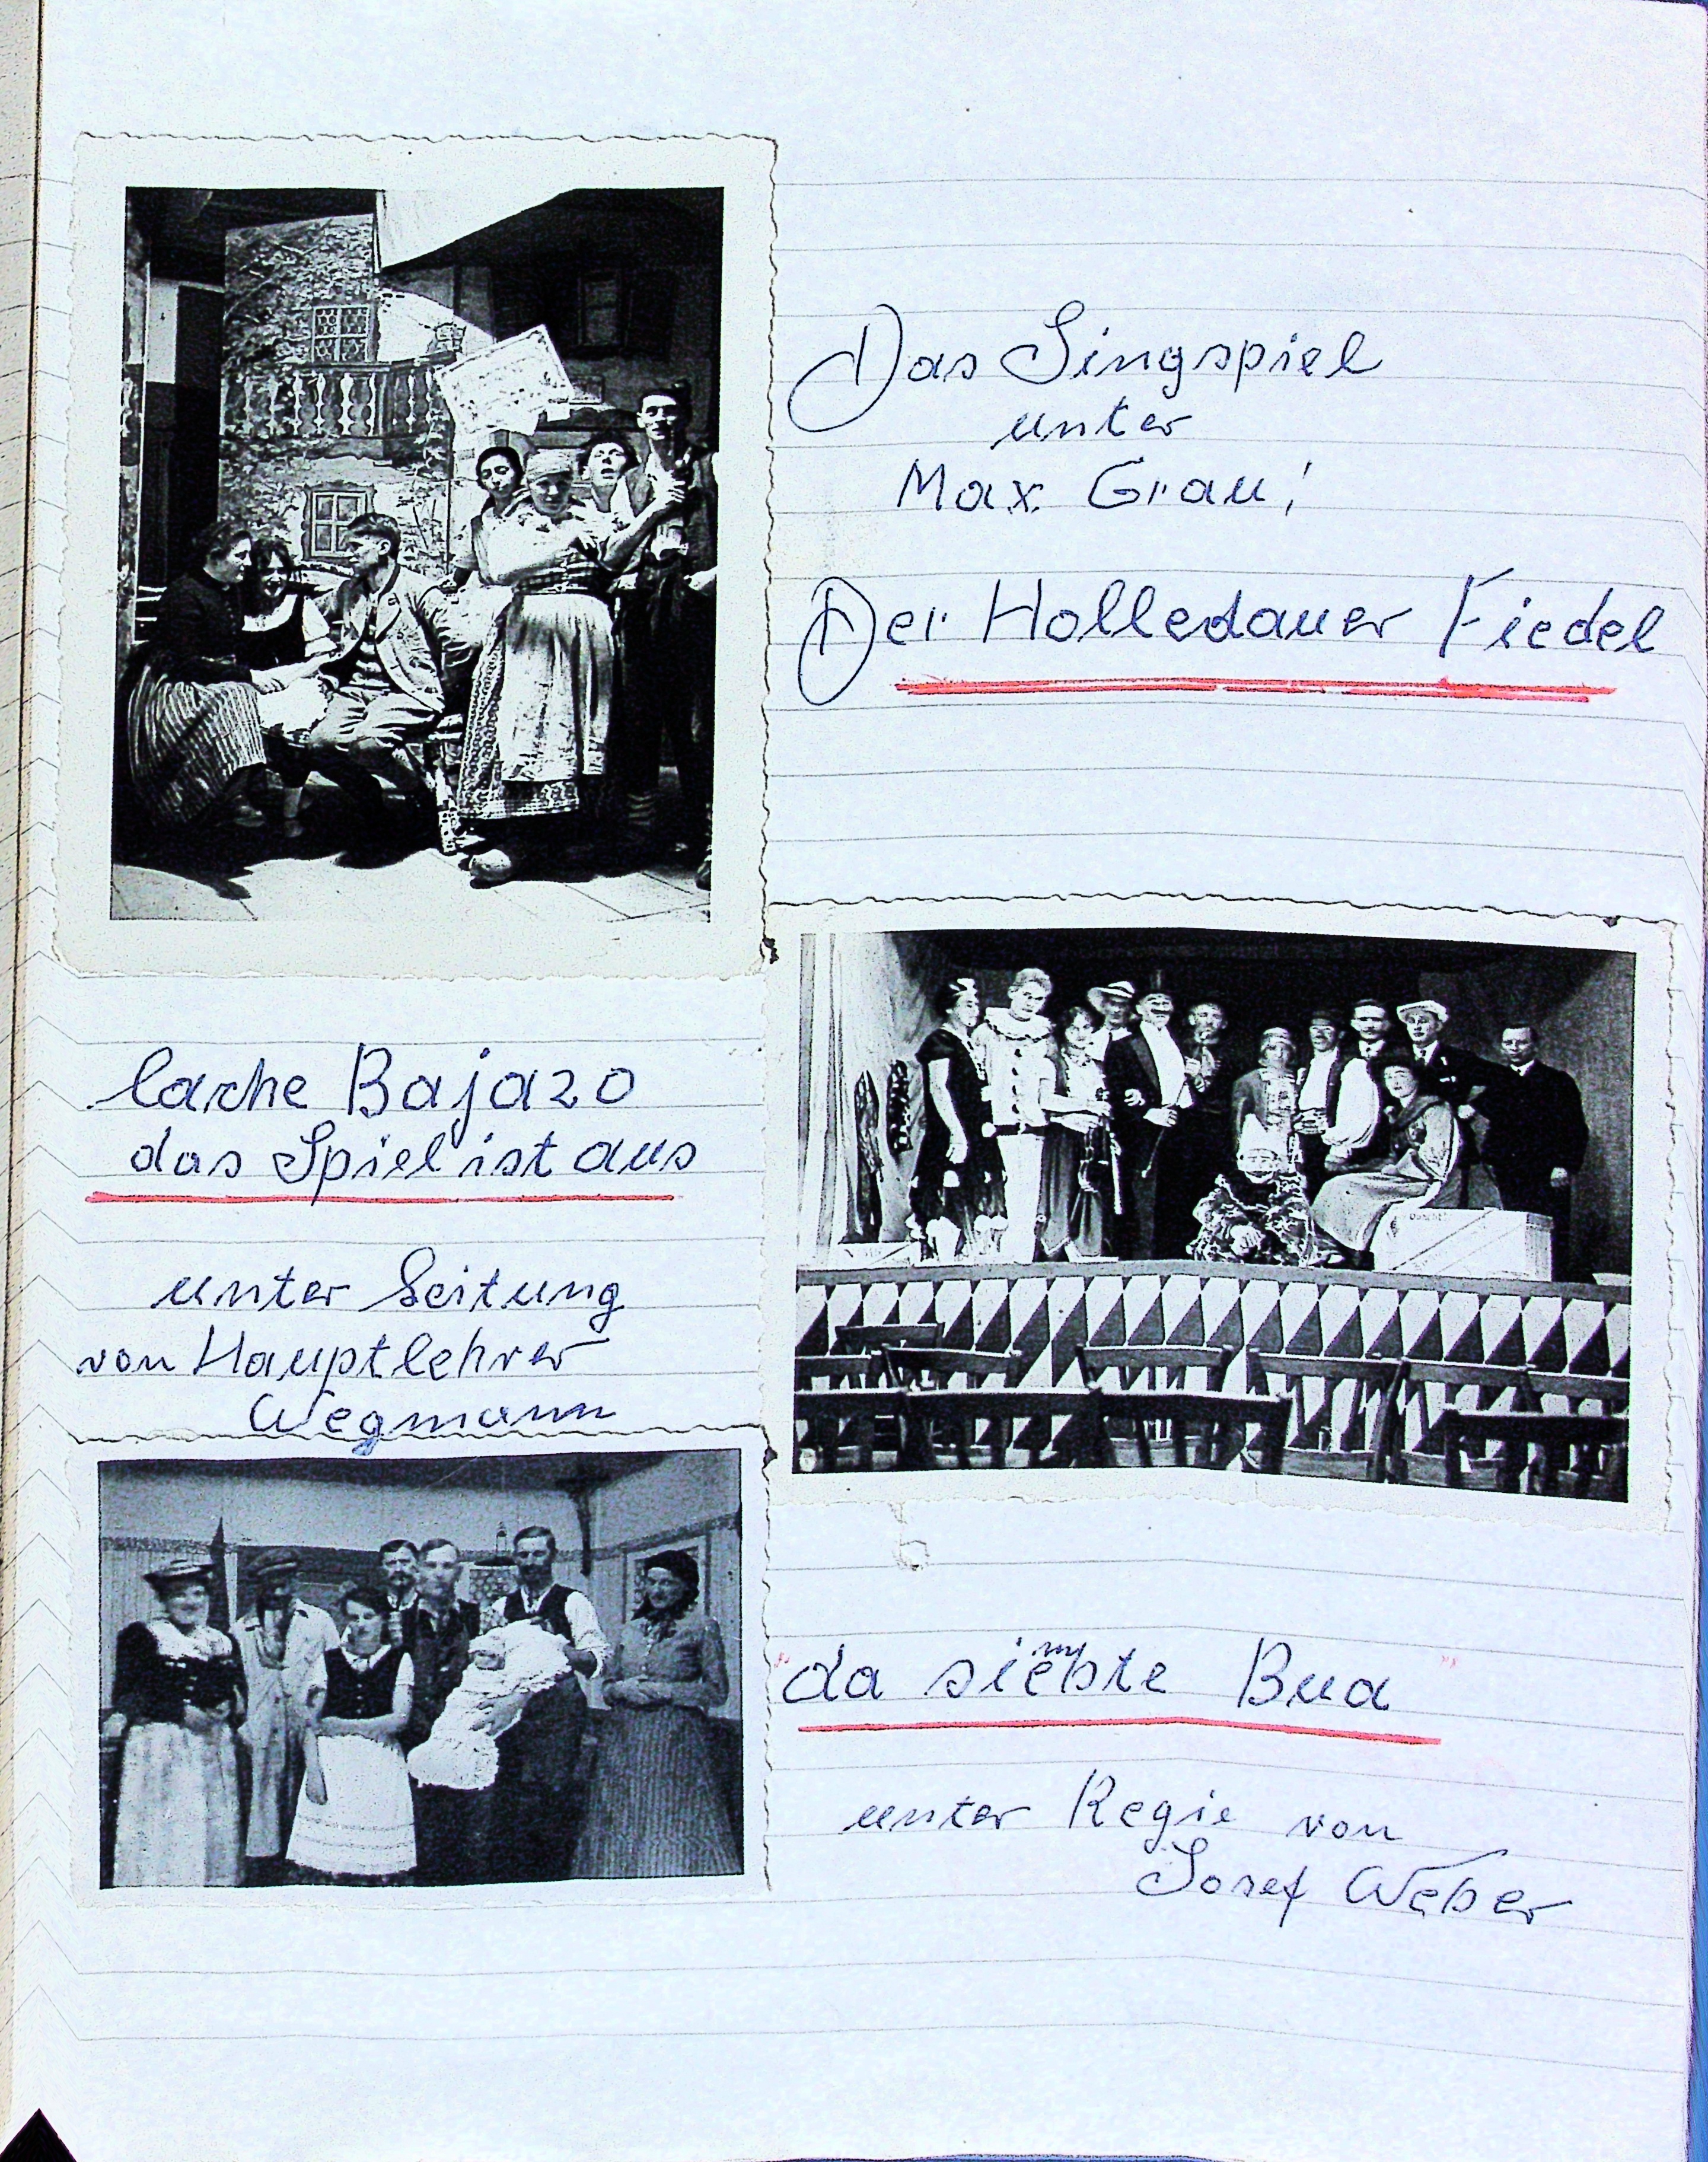 Das Singspiel
unter
Max Grau!
Der Holledauer Fiedel
lache Bajazo
das Spiel ist aus
unter Leitung
von Hauptlehrer
Wegmann
"da siebte Bua"
unter Regie von
Josef Weber